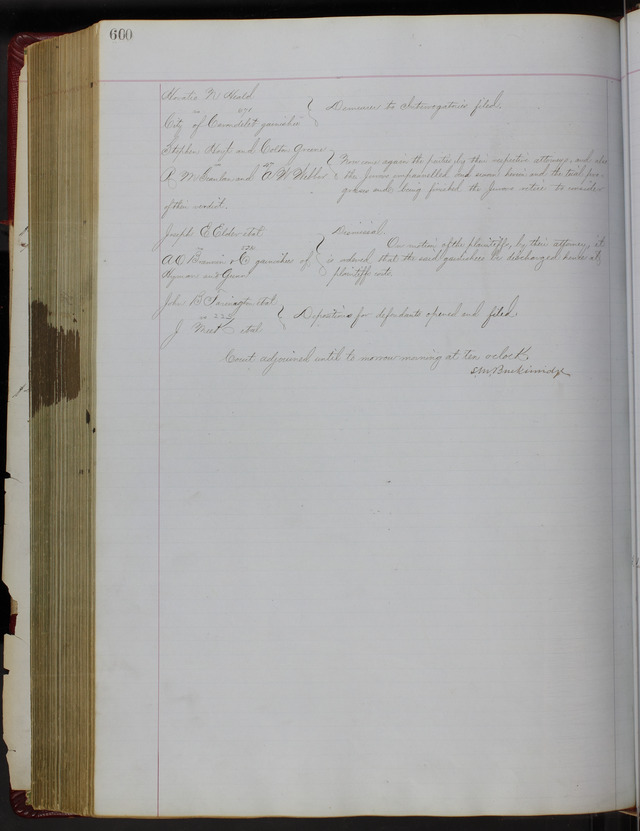 600
Horatio N Heald
vs 871
City of Carondelet garnishee } Demurrer to Interrogatories filed.
Stephen Hoyt and Colton Greene
vs
R. M. Scanlan and A W Webber } Now come again the parties by their respective attorneys, and also
the Jurors impannelled and sworn herein and the trial pro-
gresses and being finished the Jurors retire to consider
of their verdict.
Joseph E Elder etal
vs
A O garnishee of
Hyman and } Dismissal.
On motion of the plaintiffs, by their attorney, it
is ordered that the said garnishees be discharged hence at
plaintiffs costs.
John B etal
vs
J Meek etal } Depositions for defendants opened and filed.
Court adjourned until to morrow morning at ten oclock.
S.M. Breckinridge